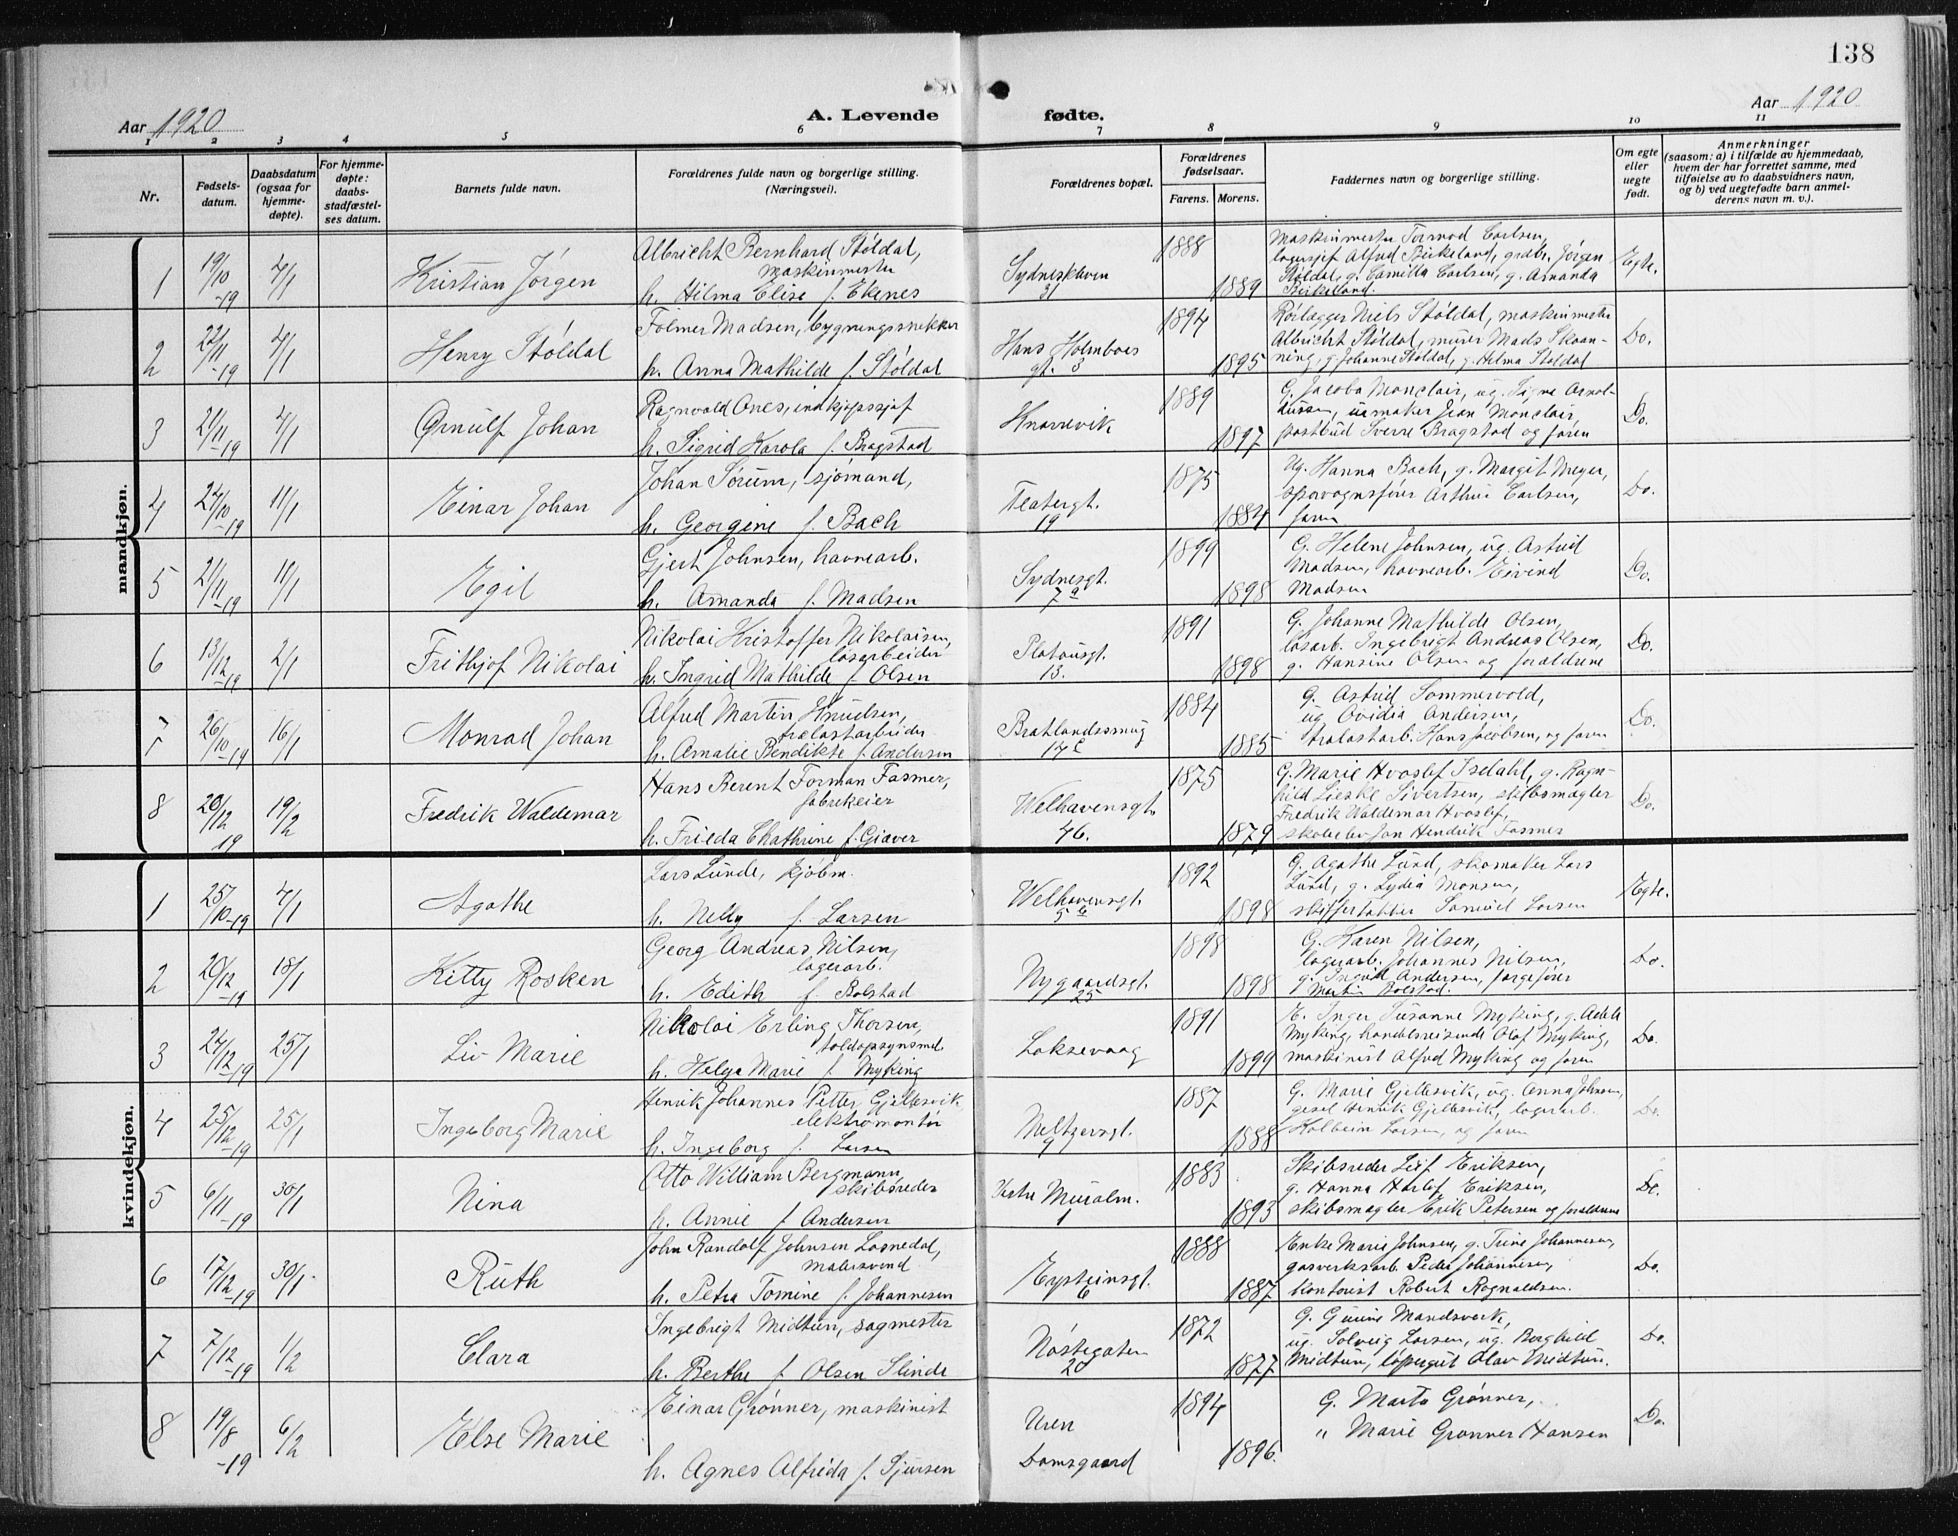 138
Aar 1920
A. Levende fødte.
Aar 1920
1 2 3 4 5 6 7 8 9 10 11
Nr.
Fødsels-
datum.
Daabsdatum
(ogsaa for
hjemme-
døpte).
For hjemme-
døpte:
daabs-
stadfæstel-
ses datum.
Barnets fulde navn.
Forældrenes fulde navn og borgerlige stilling.
(Næringsvei).
Forældrenes bopæl.
Forældrenes
fødselsaar.
Farens. Morens.
Faddernes navn og borgerlige stilling.
Om egte
eller
uegte
født.
Anmerkninger
(saasom: a) i tilfælde av hjemmedaab,
hvem der har forrettet samme, med
tilføielse av to daabsvidners navn,
og b) ved uegtefødte barn anmel-
derens navn m. v.).
mandkjøn.
1
19/10-19
4/1
Kristian Jørgen
Albricht Bernhard Støldal,
maskinmester
h. Hilma Elise f. Ekenes
Sydneskleven
31
1888
1889
Maskinmester Tormod Carlsen,
lagersjef Alfred Birkeland, grdbr. Jørgen
Støldal, g. Camilla Carlsen, g. Amanda
Birkeland.
Egte.
2
22/11-19
4/1
Henry Støldal
Folmer Madsen, bygningssnekker
h. Anna Mathilde f. Støldal
Hans Holmboes
gt. 3
1894
1895
Rørlægger Niels Støldal, maskinmester
Albricht Støldal, murer Mads Skaan-
ning, g. Johanne Støldal, g. Hilma Støldal
Do.
3
21/11-19
4/1
Ørnulf Johan
Ragnvald Ones, indkjøpssjef
h. Sigrid Karola f. Bragstad
Knarrevik
1889
1897
G. Jacoba Monclair, ug. Signe Arnol-
dussen, urmaker Jean Monclair,
postbud Sverre Bragstad og faren
Do.
4
24/10-19
11/1
Einar Johan
Johan Sørum, sjømand,
h. Georgine f. Bach
Teatergt.
19
1875
1884
Ug. Hanna Bach, g. Margit Meyer,
sporvognsfører Arthur Carlsen,
faren
Do.
5
21/11-19
11/1
Egil
Gjert Johnsen, havnearb.
h. Amanda f. Madsen
Sydnesgt.
7a
1899
1898
G. Helene Johnsen, ug. Astrid
Madsen, havnearb. Eivind
Madsen
Do.
6
13/12-19
2/1
Frithjof Nikolai
Nikolai Kristoffer Nikolaisen,
løsarbeider
h. Ingrid Mathilde f. Olsen
Platousgt.
13.
1891
1898
G. Johanne Mathilde Olsen,
løsarb. Ingebrigt Andreas Olsen,
g. Hansine Olsen og forældrene
Do.
7
26/10-19
16/1
Monrad Johan
Alfred Martin Knudsen,
trælastarbeider
h. Amalie Bendikte f. Andersen
Bratlandssmug
17c
1884
1885
G. Astrid Sommervold,
ug. Ovidia Andersen,
trælastarb. Hans Jacobsen, og faren
Do.
8
20/12 19
19/2
Fredrik Waldemar
Hans Berent Forman Fasmer,
fabrikeier
h. Frieda Chathrine f. Giæver
Welhavensgt.
46.
1875
1879
G. Marie Hvoslef Isdahl, g. Ragn-
hild Lieske Sivertsen, skibsmægler
Fredrik Waldemar Hvoslef,
skoleelev Jan Hendrik Fasmer
Do.
kvindekjøn.
1
25/10-19
4/1
Agathe
Lars Lunde, kjøbm.
h. Nelly f. Larsen
Welhavensgt.
56
1892
1898
G. Agathe Lund, skomaker Lars
Lund, g. Lydia Monsen,
skiffertækker Samuel Larsen
Egte.
2
20/12-19
18/1
Kitty Rosken
Georg Andreas Nilsen,
lagerarb.
h. Edith f. Bolstad
Nygaardsgt.
25
1898
1898
G. Karen Nilsen,
lagerarb. Johannes Nilsen,
g. Ingrid Andersen, færgefører
Martin Bolstad.
Do.
3
24/12-19
25/1
Liv Marie
Nikolai Erling Thorsen,
toldopsynsmd.
h. Helga Marie f. Myking
Laksevaag
1891
1899
E. Inger Susanne Myking, g. Adele
Myking, handelsreisende Olaf Myking,
maskinist Alfred Myking og faren
Do.
4
25/12-19
25/1
Ingeborg Marie
Henrik Johannes Petter Gjeltesvik
elektromontør
h. Ingeborg f. Larsen
Neltzersgt.
9
1887
1888
G. Marie Gjeltesvik, ug. Anna Johnsen,
gesel Henrik Gjeltesvik, lagerarb.
Holbein Larsen, og faren
Do.
5
6/11-19
30/1
Nina
Otto William Bergmann,
skibsreder
h. Annie f. Andersen
Vestre Muralm.
1
1883
1893
Skibsreder Leif Eriksen,
g. Hanna Harlof Eriksen,
skibsmægler Erik Petersen og forældrene
Do.
6
17/12-19
30/1
Ruth
John Randolf Johnsen Losnedal,
malersvend
h. Petra Tomine f. Johannesen
Eysteinsgt.
6
1888
1887
Enke Marie Johnsen, g. Trine Johannesen,
gasverksarb. Peder Johannesen,
kontorist Robert Ragnaldsen.
Do.
7
7/12-19
1/2
Clara
Ingebrigt Midtun, sagmester
h. Berthe f. Olsen Slinde
Nøstegaten
20
1872
1877
G. Gunne Mandsverk,
ug. Solveig Larsen, ug. Borghild
Midtun, løpegut Olav Midtun.
Do.
8
19/8-19
6/2
Else Marie
Einar Grønner, maskinist
h. Agnes Alfrida f. Sjursen
Uren
Damsgaard
1894
1896.
G. Marta Grønner,
" Marie Grønner Hansen
Do.